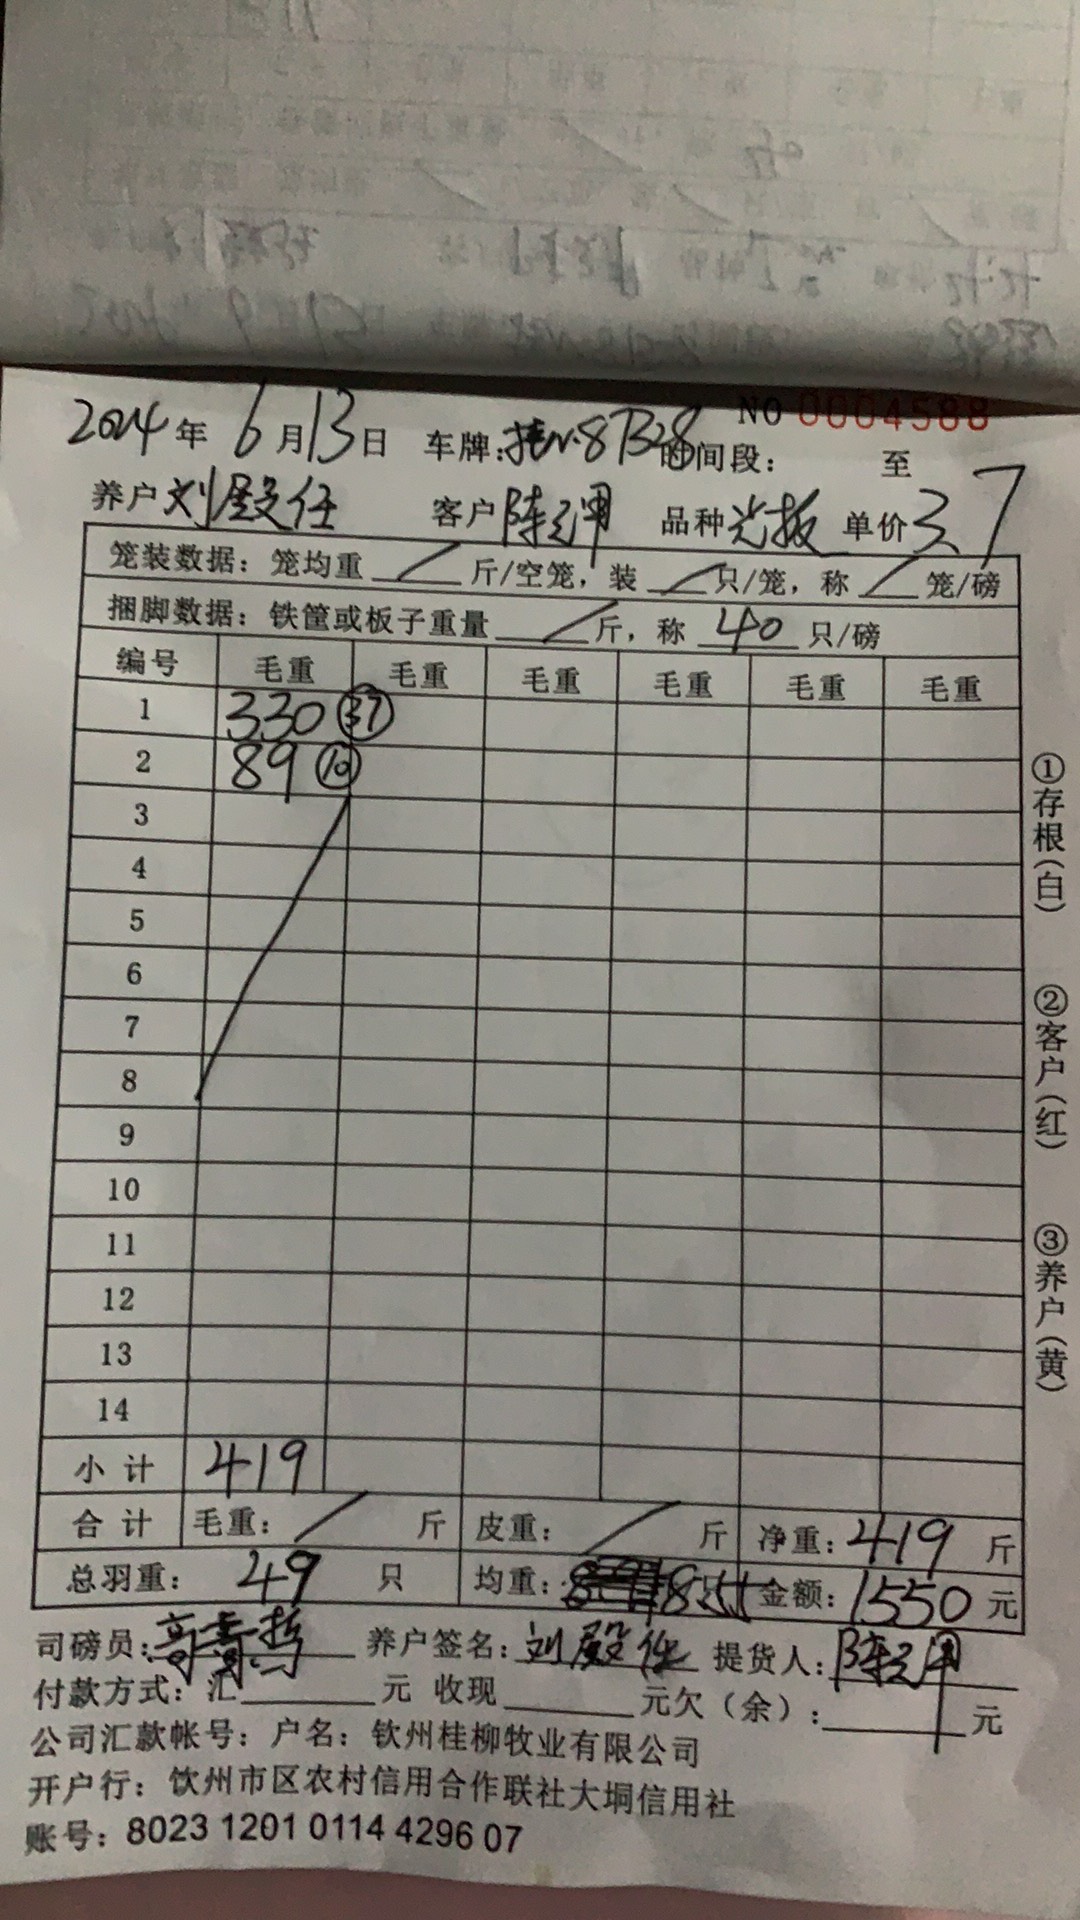 NO 0004588
2024年 6月13日 车牌: 87328 时间段: 至
养户 刘殿任 客户 陈 品种 光板 单价 3.7
笼装数据: 笼均重 / 斤/空笼, 装 / 只/笼, 称 / 笼/磅
捆脚数据: 铁筐或板子重量 / 斤, 称 40 只/磅
编号 毛重 毛重 毛重 毛重 毛重 毛重
1 330 37
2 89 10
3
4
5
6
7
8
9
10
11
12
13
14
小计 419
合计 毛重: / 斤 皮重: / 斤 净重: 419 斤
总羽重: 49 只 均重: 8.55 金额: 1550 元
司磅员: 养户签名: 刘殿任 提货人: 陈
付款方式: 汇 元 收现 元欠(余): 元
公司汇款帐号: 户名: 钦州桂柳牧业有限公司
开户行: 饮州市区农村信用合作联社大垌信用社
账号: 8023 1201 0114 4296 07
①存根(白)
②客户(红)
③养户(黄)